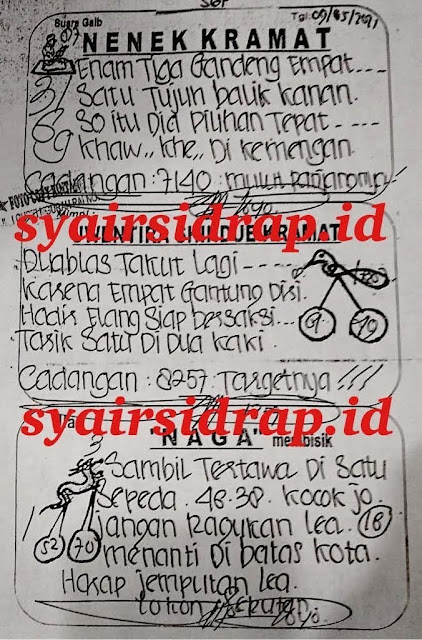 SGP
Suara Gaib
Tgl: 09/05/2021
NENEK KRAMAT
Enam Tiga Gandeng Empat----
Satu Tujuh balik Kanan.
So itu Dia Pilihan Tepat----
Khaw,, Khe,, Di Kemengan.
Cadangan : 7140 :
syairsidrap.id
KRAMAT
Duablas Takut Lagi----
Karena Empat Gantung Disi.
Hadir Elang Siap bersaksi...
Tarik Satu Di Dua Kaki.
9
Cadangan : 8257. Targetnya !!!
syairsidrap.id
"NAGA" membisik
Sambil Tertawa Di Satu
Sepeda. 48-38. Kocok jo.
Jangan Ragukan Lea. 18
52 70
menanti Di batas Kota.
Harap jemputan Lea.